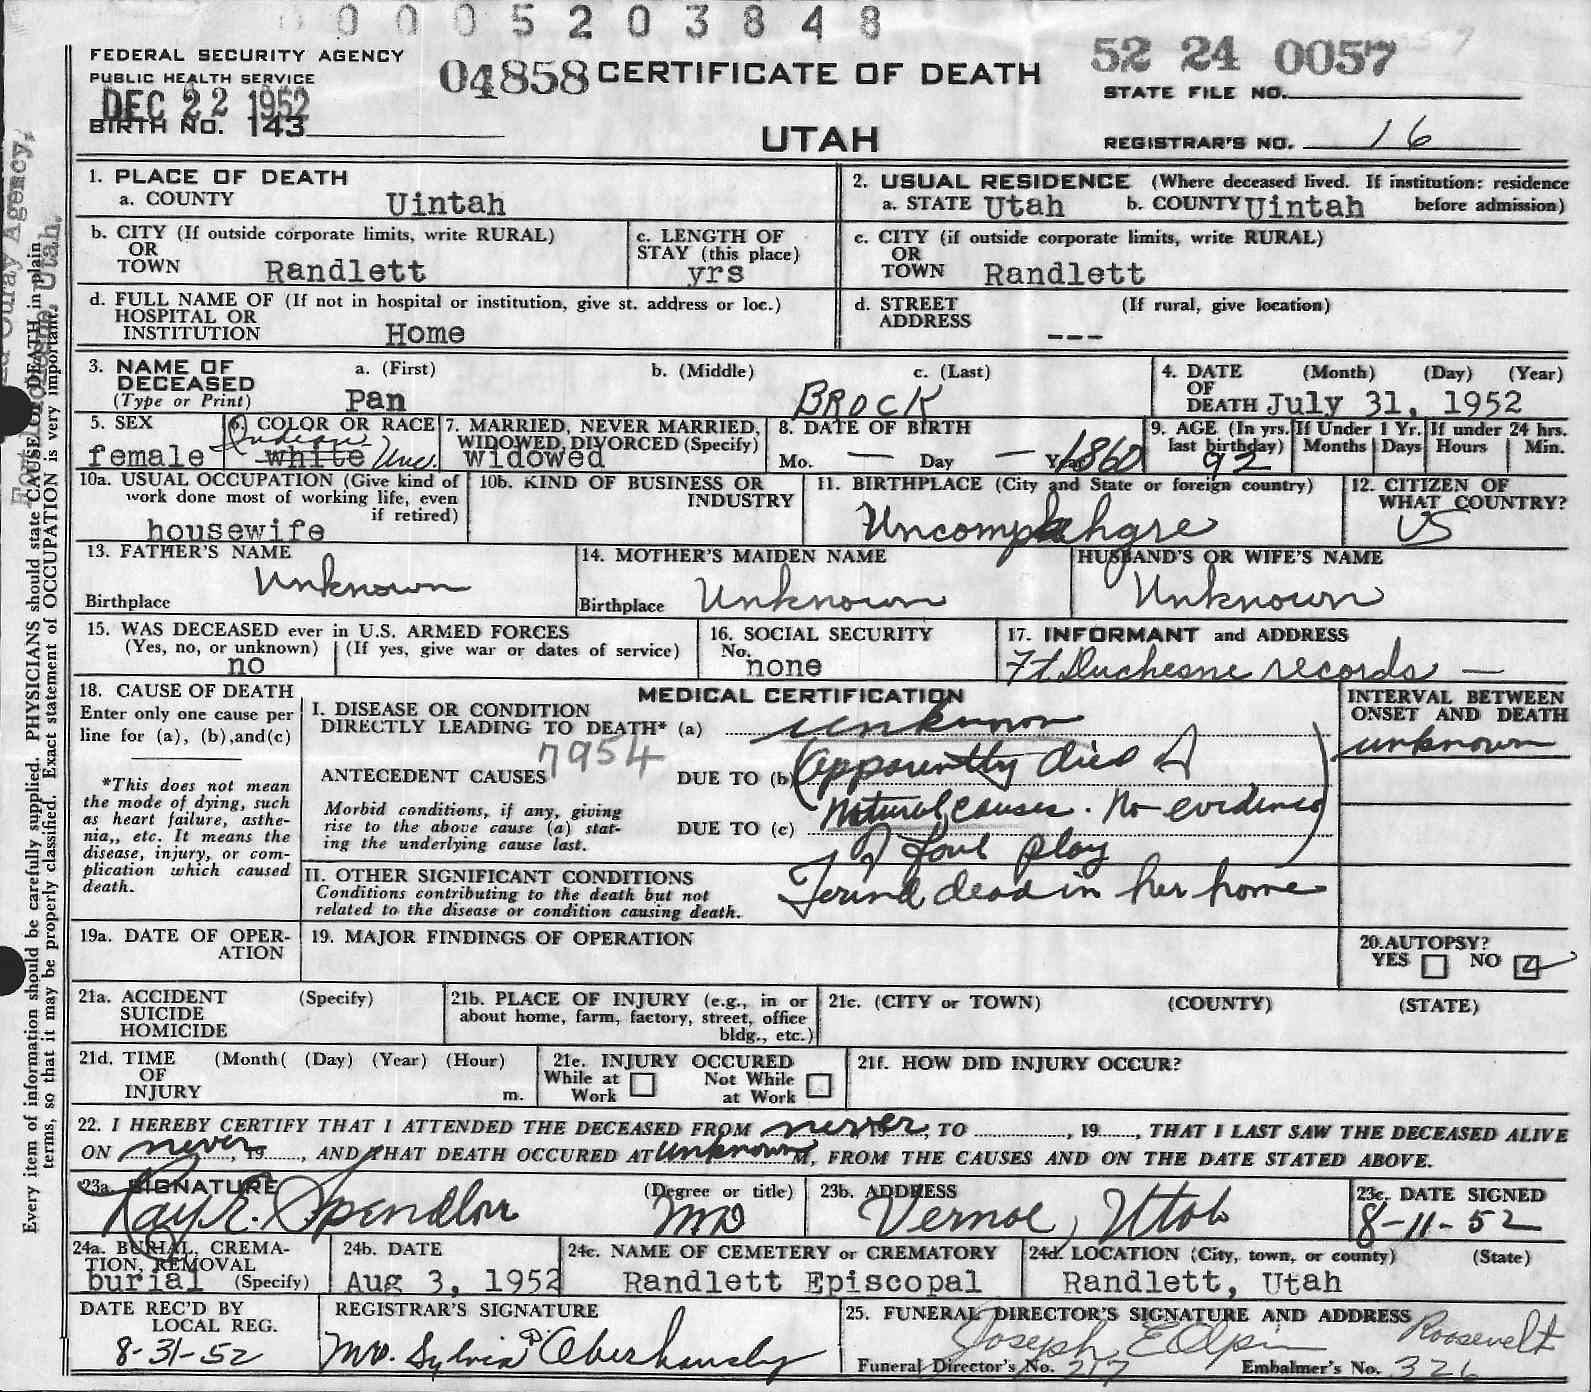 0 0 0 5 2 0 3 8 4 8
FEDERAL SECURITY AGENCY
PUBLIC HEALTH SERVICE
DEC 22 1952
BIRTH NO. 143
04858 CERTIFICATE OF DEATH
UTAH
52 24 0057
STATE FILE NO.
REGISTRAR'S NO. 16
1. PLACE OF DEATH
a. COUNTY Uintah
2. USUAL RESIDENCE (Where deceased lived. If institution: residence
a. STATE Utah b. COUNTY Uintah before admission)
b. CITY (If outside corporate limits, write RURAL)
OR
TOWN Randlett
c. LENGTH OF
STAY (this place)
yrs
c. CITY (if outside corporate limits, write RURAL)
OR
TOWN Randlett
d. FULL NAME OF (If not in hospital or institution, give st. address or loc.)
HOSPITAL OR
INSTITUTION Home
d. STREET (If rural, give location)
ADDRESS ---
3. NAME OF a. (First) b. (Middle) c. (Last)
DECEASED
(Type or Print) Pan BROCK
4. DATE (Month) (Day) (Year)
OF
DEATH July 31, 1952
5. SEX
female
6. COLOR OR RACE
Indian
white Unc.
7. MARRIED, NEVER MARRIED,
WIDOWED, DIVORCED (Specify)
widowed
8. DATE OF BIRTH
Mo. — Day — Year 1860
9. AGE (In yrs.
last birthday)
92
If Under 1 Yr.
Months Days
If under 24 hrs.
Hours Min.
10a. USUAL OCCUPATION (Give kind of
work done most of working life, even
if retired)
housewife
10b. KIND OF BUSINESS OR
INDUSTRY
11. BIRTHPLACE (City and State or foreign country)
Uncompahgre
12. CITIZEN OF
WHAT COUNTRY?
US
13. FATHER'S NAME
Unknown
Birthplace
14. MOTHER'S MAIDEN NAME
Birthplace Unknown
HUSBAND'S OR WIFE'S NAME
Unknown
15. WAS DECEASED ever in U.S. ARMED FORCES
(Yes, no, or unknown) (If yes, give war or dates of service)
no
16. SOCIAL SECURITY
No.
none
17. INFORMANT and ADDRESS
Ft. Duchesne records —
18. CAUSE OF DEATH
Enter only one cause per
line for (a), (b),and(c)
*This does not mean
the mode of dying, such
as heart failure, asthe-
nia,, etc. It means the
disease, injury, or com-
plication which caused
death.
MEDICAL CERTIFICATION
I. DISEASE OR CONDITION
DIRECTLY LEADING TO DEATH* (a) unknown
7954
ANTECEDENT CAUSES DUE TO (b) (Apparently died of
Morbid conditions, if any, giving
rise to the above cause (a) stat-
ing the underlying cause last.
DUE TO (c) Natural causes. No evidence
of foul play)
II. OTHER SIGNIFICANT CONDITIONS
Conditions contributing to the death but not
related to the disease or condition causing death.
Found dead in her home
INTERVAL BETWEEN
ONSET AND DEATH
unknown
19a. DATE OF OPER-
ATION
19. MAJOR FINDINGS OF OPERATION
20.AUTOPSY?
YES NO
21a. ACCIDENT (Specify)
SUICIDE
HOMICIDE
21b. PLACE OF INJURY (e.g., in or
about home, farm, factory, street, office
bldg., etc.)
21c. (CITY or TOWN) (COUNTY) (STATE)
21d. TIME (Month( (Day) (Year) (Hour)
OF
INJURY m.
21e. INJURY OCCURED
While at Not While
Work at Work
21f. HOW DID INJURY OCCUR?
22. I HEREBY CERTIFY THAT I ATTENDED THE DECEASED FROM never, 19, TO , 19, THAT I LAST SAW THE DECEASED ALIVE
ON never, 19, AND THAT DEATH OCCURED AT unknown M, FROM THE CAUSES AND ON THE DATE STATED ABOVE.
23a. SIGNATURE (Degree or title)
Ray E. Spendlove MD
23b. ADDRESS
Vernal, Utah
23c. DATE SIGNED
8-11-52
24a. BURIAL, CREMA-
TION, REMOVAL
burial (Specify)
24b. DATE
Aug 3, 1952
24c. NAME OF CEMETERY or CREMATORY
Randlett Episcopal
24d. LOCATION (City, town, or county) (State)
Randlett, Utah
DATE REC'D BY
LOCAL REG.
8-31-52
REGISTRAR'S SIGNATURE
Mrs. Sylvia P. Oberhansly
25. FUNERAL DIRECTOR'S SIGNATURE AND ADDRESS
Joseph E Olpin Roosevelt
Funeral Director's No. 217 Embalmer's No. 326
Every item of information should be carefully supplied. PHYSICIANS should state CAUSE OF DEATH in plain
terms, so that it may be properly classified. Exact statement of OCCUPATION is very important.
Ouray Agency,
Utah.